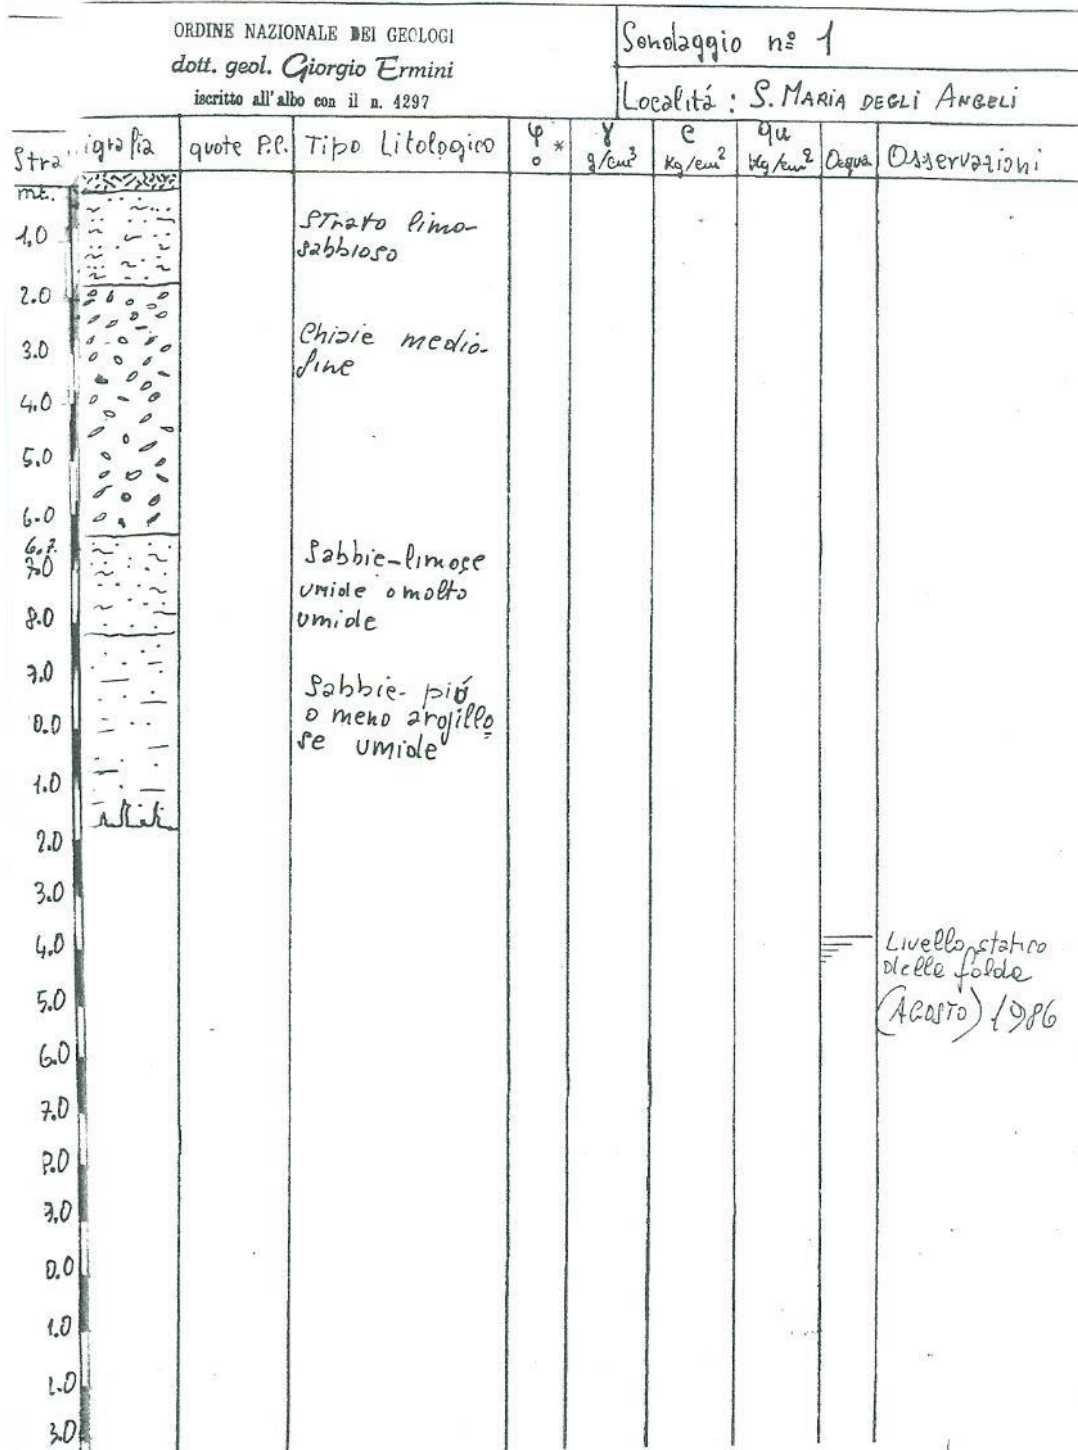 ORDINE NAZIONALE DEI GEOLOGI
dott. geol. Giorgio Ermini
iscritto all'albo con il n. 4297
Sondaggio n° 1
Località : S. MARIA DEGLI ANGELI
Stratigrafia
quote P.C.
Tipo Litologico
φ *
°
γ
g/cm³
c
kg/cm²
qu
kg/cm²
Acqua
Osservazioni
mt.
1,0
Strato limo-
sabbioso
2.0
3.0
Ghiaie medio-
fine
4,0
5,0
6.0
6.7.
7.0
Sabbie-limose
umide o molto
umide
8.0
9.0
Sabbie- più
o meno argillo
se umide
0.0
1.0
2.0
3.0
4,0
Livello statico
della falda
(AGOSTO) 1986
5.0
6.0
7.0
8.0
9.0
0.0
1.0
1.0
3.0